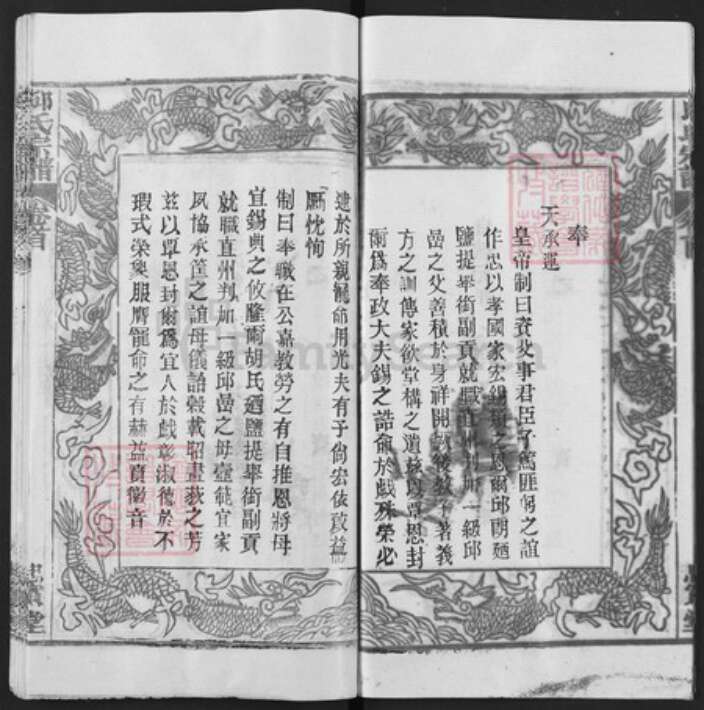 奉
天承運
皇帝制曰資父事君臣子篤匪躬之誼
作忠以孝國家宏錫類之恩爾邱朗廼
鹽提舉銜副貢就職直州判加一級邱
嵒之父善積於身祥開厥後教子著義
方之訓傳家欲堂構之遺茲以覃恩封
爾爲奉政大夫錫之誥命於戲殊榮必
逮於所親寵命用光夫有子尙宏依啟益
厲忱恂
制曰奉職在公嘉教勞之有自推恩將母
宜錫典之攸隆爾胡氏廼鹽提舉銜副貢
就職直州判加一級邱嵒之母壼範宜家
夙協承筐之誼母儀詒穀載昭畫荻之芳
茲以覃恩封爾爲宜人於戲彰淑德於不
瑕式榮象服膺寵命之有赫益賁徽音
邱氏宗譜
卷首
忠實堂
FamilySearch